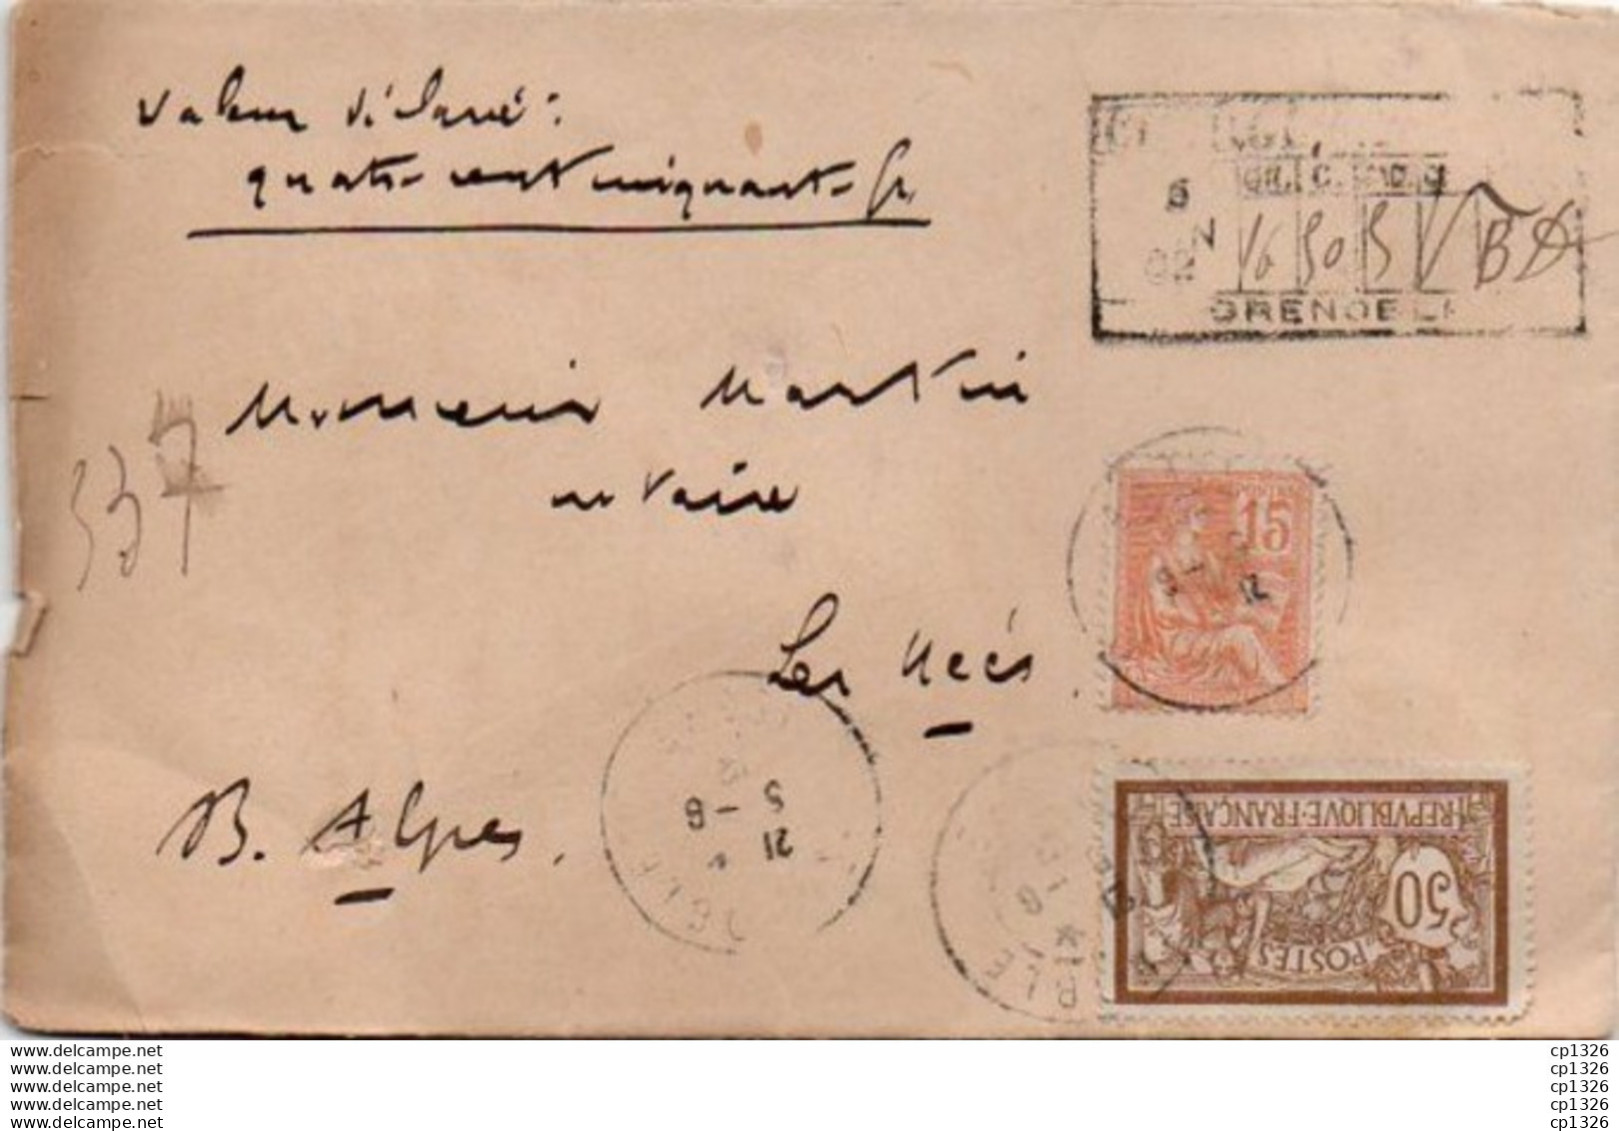 Valeur déclaré :
quatre cent cinquante fr.
5
02
GR. C.
16 50 5 V BD
GRENOBLE
Monsieur Martin
notaire
337
Les Mées.
B. Alpes.
15
21
5 - 6
02
REPVBLIQVE·FRANÇAISE
50 c
POSTES
BLE
www.delcampe.net
www.delcampe.net
www.delcampe.net
www.delcampe.net
www.delcampe.net
cp1326
cp1326
cp1326
cp1326
cp1326